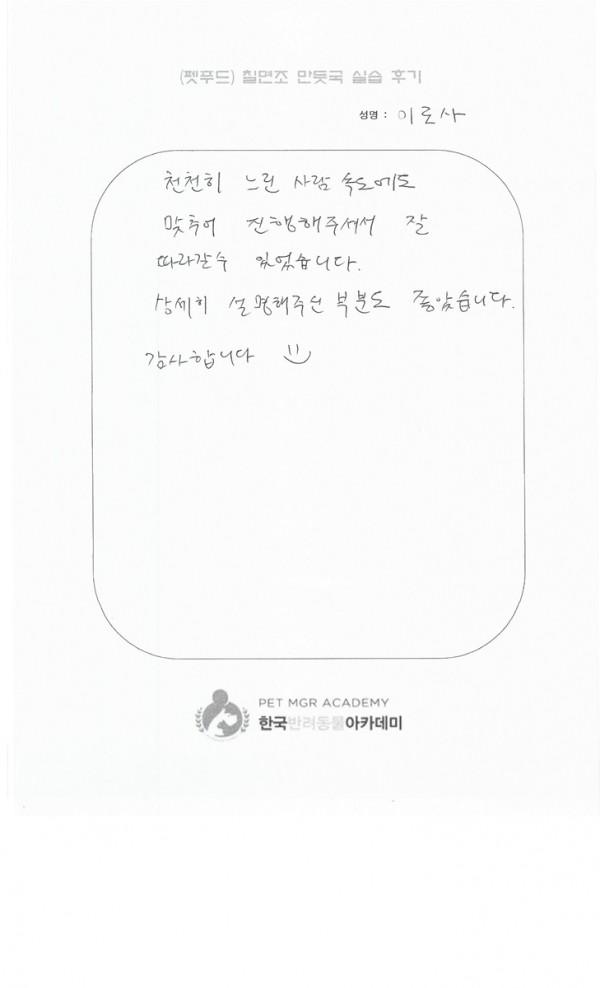 (펫푸드) 칠면조 만둣국 실습 후기
성명 : 이로사
천천히 느린 사람 속도에도
맞추어 진행해주셔서 잘
따라갈수 있었습니다.
상세히 설명해주신 부분도 좋았습니다.
감사합니다
PET MGR ACADEMY
한국반려동물아카데미